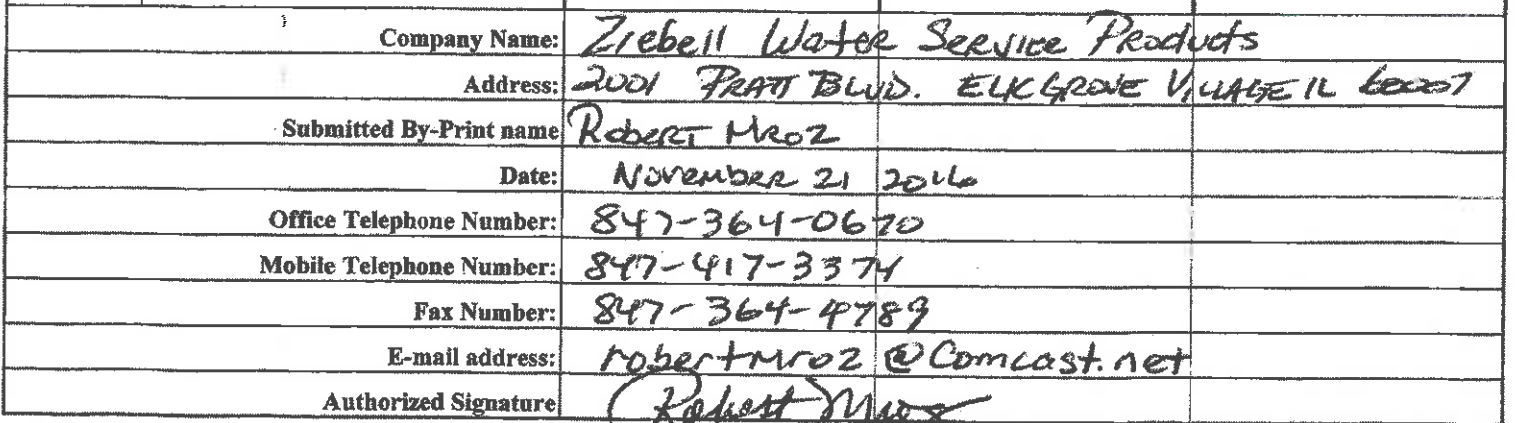 Company Name: Ziebell Water Service Products
Address: 2001 PRATT BLVD. ELK GROVE VILLAGE IL 60007
Submitted By-Print name Robert Mroz
Date: November 21 2016
Office Telephone Number: 847-364-0670
Mobile Telephone Number: 847-417-3374
Fax Number: 847-364-4789
E-mail address: robertmroz@Comcast.net
Authorized Signature Robert Mroz